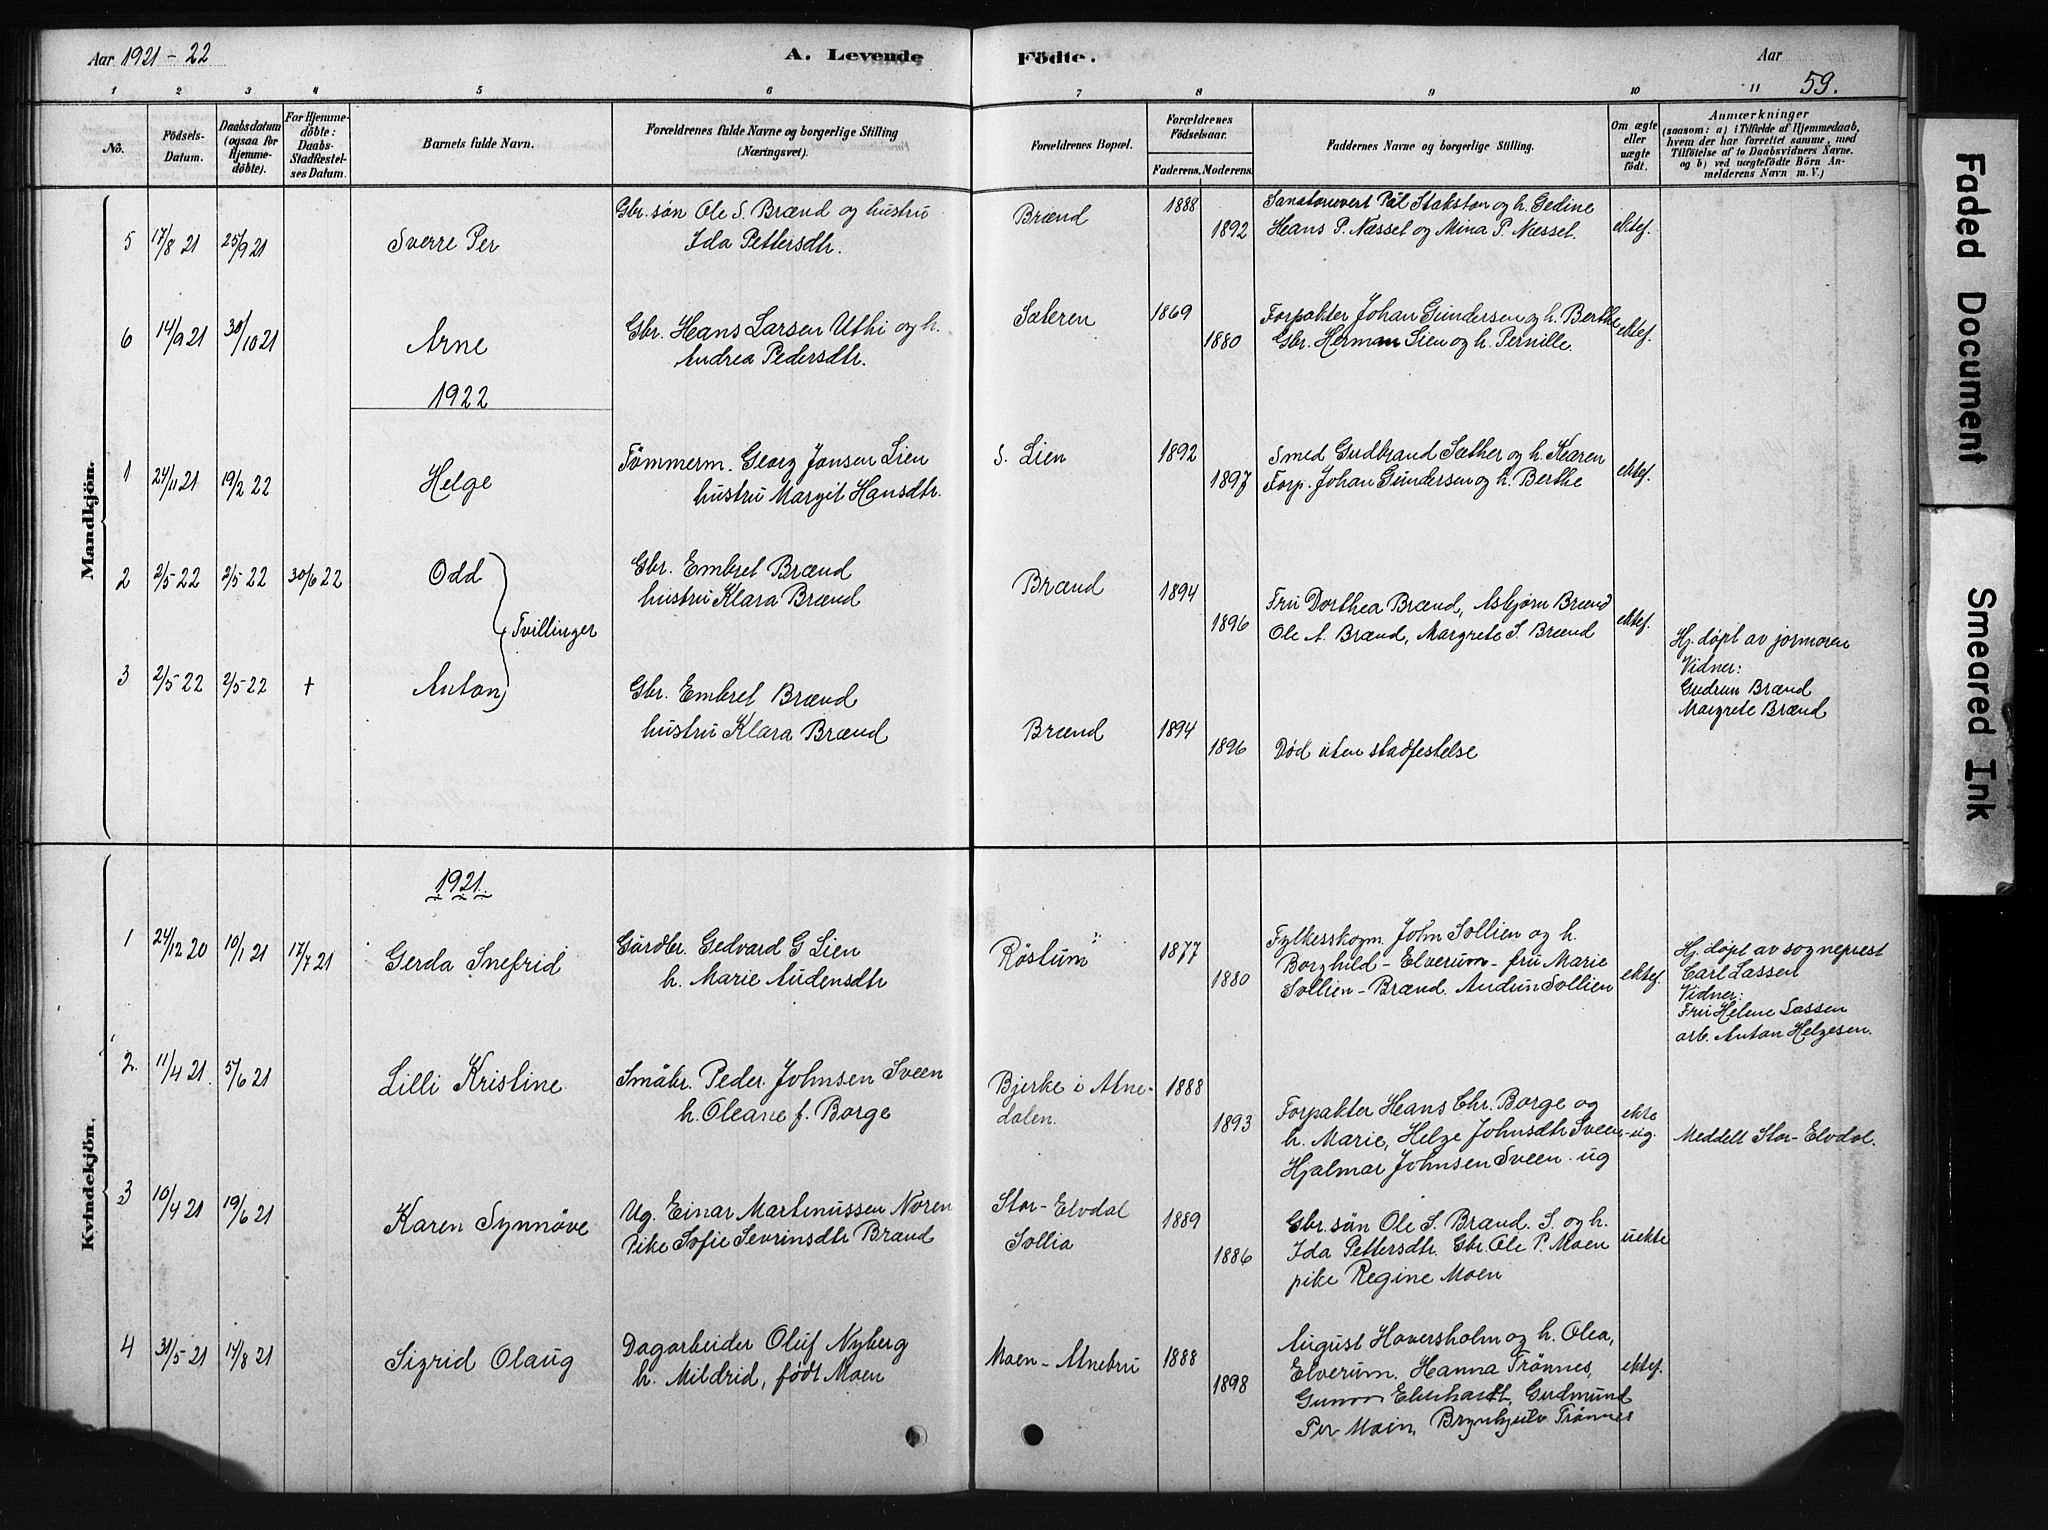 Aar 1921-22
A. Levende
Födte.
Aar
59.
1 2 3 4 5 6 7 8 9 10 11
No.
Födsels-
Datum.
Daabsdatum
(ogsaa for
Hjemme-
döbte).
For Hjemme-
döbte:
Daabs-
Stadfæstel-
ses Datum.
Barnets fulde Navn.
Forældrenes fulde Navne og borgerlige Stilling
(Næringsvei).
Forældrenes Bopæl.
Forældrenes
Födselsaar.
Faderens. Moderens.
Faddernes Navne og borgerlige Stilling.
Om ægte
eller
uægte
født.
Anmærkninger
(saasom: a) i Tilfælde af Hjemmedaab,
hvem der har forrettet samme, med
Tilföielse af to Daabsvidners Navne.
og b) ved uægtefödte Börn An-
melderens Navn m. V.)
Mandkjön.
5 17/8 21 25/9 21 Sverre Per
Gbr. sön Ole S. Brænd og hustru
Ida Pettersdtr.
Brænd 1888 1892
Pål Stakston og h. Gedine
Hans P. Næsset og Mina P. Næsset.
ektef.
6 14/9 21 30/10 21 Arne
Gbr. Hans Larsen Uthi og h.
Andrea Pedersdtr.
Sæteren 1869 1880
Forpakter Johan Gundersen og h. Berthe
Gbr. Herman Lien og h. Pernille.
ektef.
1922
1 24/11 21 19/2 22 Helge
Tömmerm. Georg Jonsen Lien
hustru Margit Hansdtr.
S. Lien 1892 1897
Smed Gudbrand Sæther og h. Karen
Forp. Johan Gundersen og h. Berthe
ektef.
2 2/5 22 2/5 22 30/6 22 Odd
Tvillinger
Gbr. Embret Brænd
hustru Klara Brænd
Brænd 1894 1896
Fru Dorthea Brænd, Asbjørn Brænd
Ole A. Brænd, Margrete S. Brænd
ektef.
Hj. døpt av jormoren
Vidner:
Gudrun Brænd
Margrete Brænd
3 2/5 22 2/5 22 + Anton
Gbr. Embret Brænd
hustru Klara Brænd
Brænd 1894 1896
Død uten stadfestelse
Kvindekjön.
1921.
1 24/12 20 10/1 21 17/7 21 Gerda Snefrid
Gårdbr. Gedvard G Lien
h. Marie Audensdtr
Röstum 1877 1880
Fylkesskogm. John Sollien og h.
Borghild - Elverum - fru Marie
Sollien - Brænd. Audun Sollien
ektef.
Hj. døpt av sogneprest
Carl Lassen
Vidner:
Fru Helene Lassen
arb. Anton Helgesen.
2. 11/4 21. 5/6 21 Lilli Kristine
Småbr. Peder Johnsen Sveen
h. Oleane f. Borge
Bjerke i Atne-
dalen.
1888 1893
Forpakter Hans Chr. Borge og
h. Marie, Helge Johnsdtr Sveen - ug.
Hjalmar Johnsen Sveen. ug
ekte
Meddelt Stor-Elvdal.
3 10/4 21 19/6 21 Karen Synnöve
Ug. Einar Martinussen Noren
Pike Sofie Sevrinsdtr Brænd
Stor-Elvdal
Sollia
1889 1886
Gbr. sön Ole S. Brænd. S. og h.
Ida Pettersdtr. Gbr. Ole P. Moen
pike Regine Moen
uekte
4 31/5 21 14/8 21 Sigrid Olaug
Dagarbeider Oluf Nyberg
h. Mildrid, født Moen
Moen - Atnebru 1888 1898
August Haversholm og h. Olea,
Elverum. Hanna Trønnes,
Gunvor Eberhardt, Gudmund
Per Moen, Brynhjulv Trønnes
ektef.
Faded Document
Smeared Ink